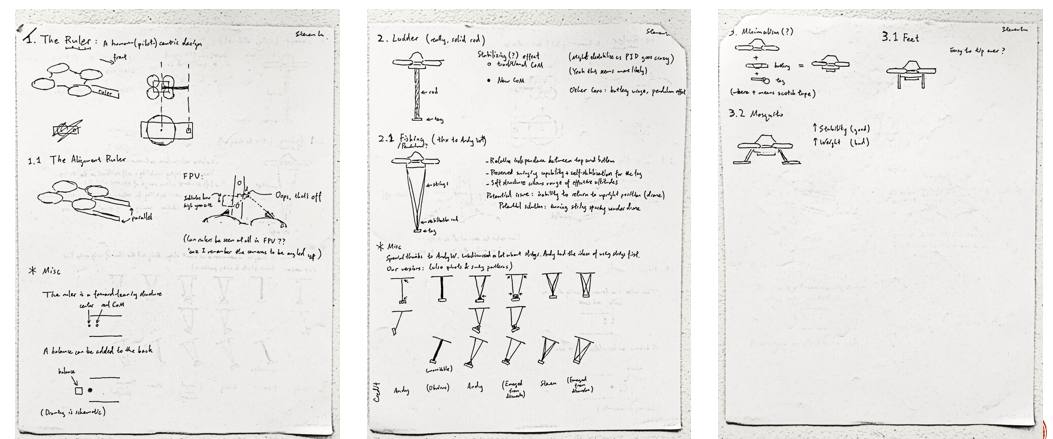 1. The Ruler: A human (pilot) centric design
Steven L.
front
ruler
1.1 The Alignment Ruler
FPV:
parallel
Oops, that's off
(Can rulers be seen at all in FPV??
'cuz I remember the cameras to be angled up.)
* Misc
The ruler is a forward-leaning structure
center real CoM
A balance can be added to the back
balance
(Drawing is schematic)
2. Ladder (really, solid rod)
Steven L.
Stabilizing (?) effect
o traditional CoM
• New CoM
(might destabilize as PID goes crazy)
(Yeah this seems more likely)
Other cons: battery usage, pendulum effect
rod
tag
2.1 Fishing (thx to Andy W)
/Pendulum?
- Relative independence between top and bottom
- Preserved swinging capability & self-stabilization for the tag
- Soft structure widens range of effective attitudes
Potential issue: inability to return to upright position (drone)
Potential solution: having sticky spacky under drone
strings
stabilizer rod
tag
* Misc
Special thanks to Andy W. We discussed a lot about strings. Andy had the idea of using strings first.
Our versions: (also pivots & swing patterns)
(unavailable)
Credit
Andy
(Obvious)
Andy
(Emerged from discussion)
Steven
(Emerged from discussion)
3. Minimalism (?)
+
battery
=
+
tag
(where + means scotch tape)
3.1 Feet
Steven L.
Easy to tip over?
3.2 Mosquito
↑ Stability (good)
↑ Weight (bad)